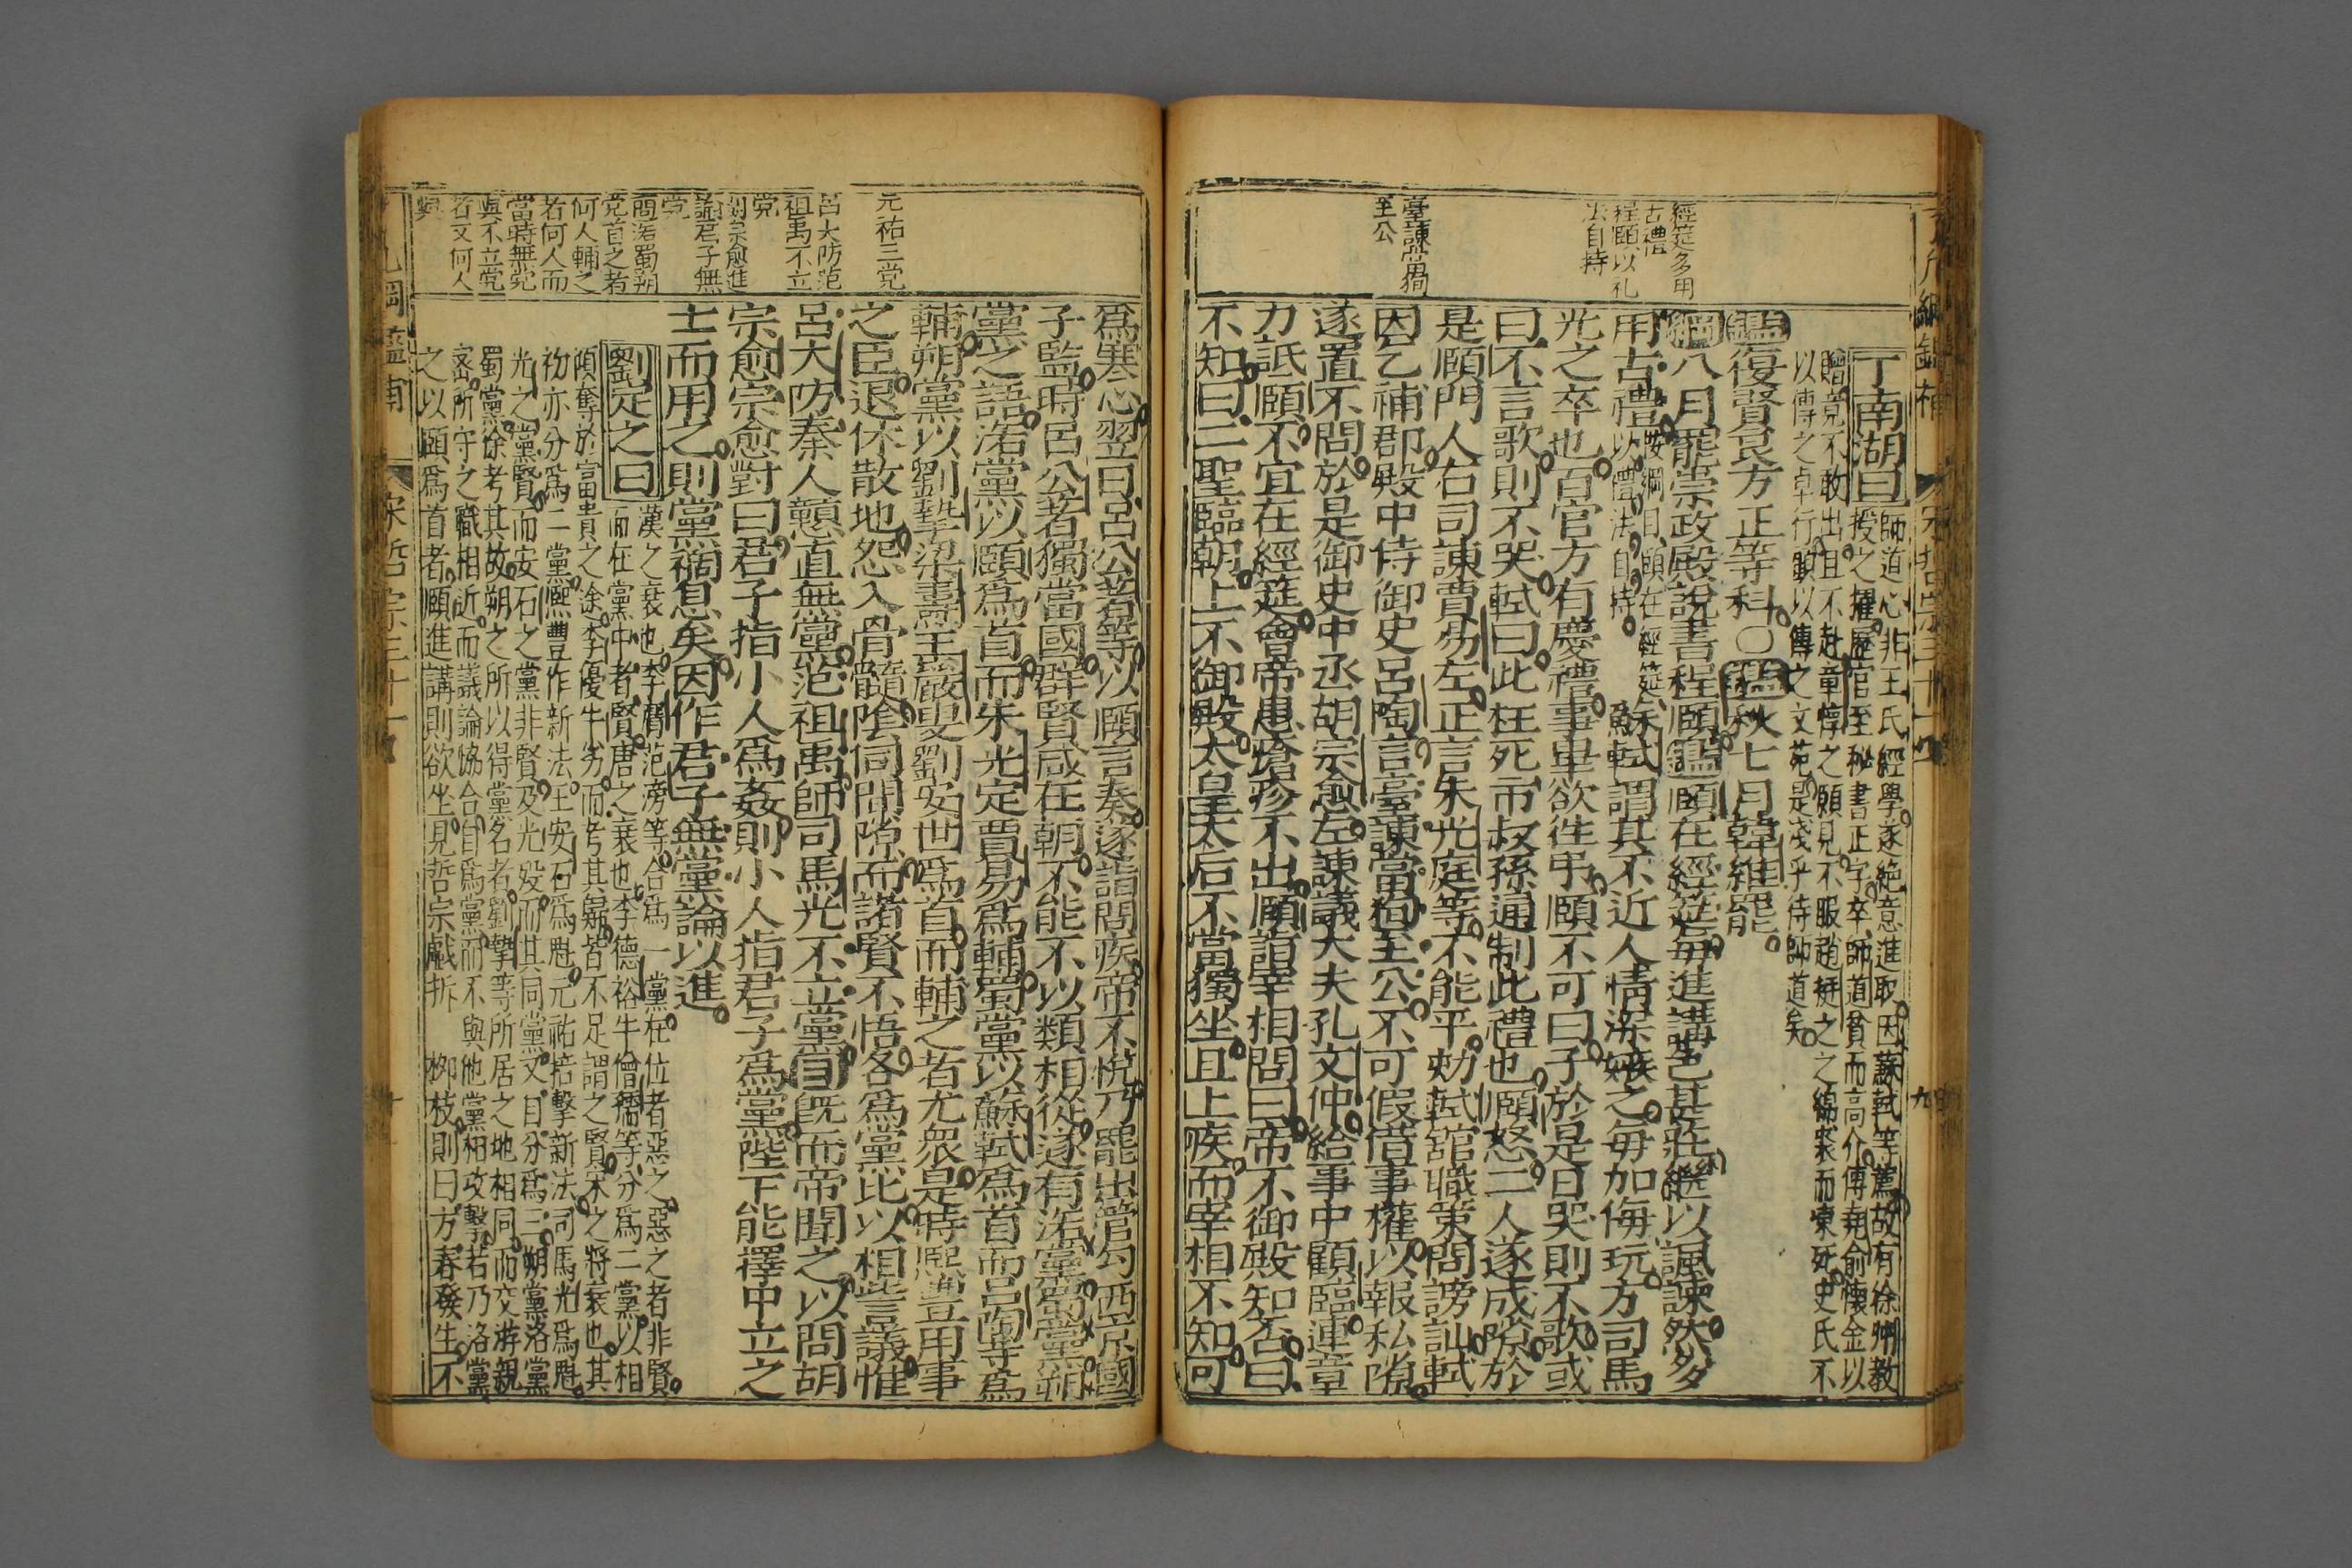 經筵多用
古禮
程頤以礼
法自持
臺諫當徇
至公
丁南湖曰
師道心非王氏經學遂絶意進取因蘇軾等薦故有徐州教
授之擢歷官至秘書正字卒師道貧而高介傅堯俞懷金以
贈竟不敢出且不赴章惇之願見不服趙挺之之綿裘而凍死史氏不
以傳之卓行顧以傳之文苑是淺乎待師道矣
鑑復賢良方正等科〇鑑秋七月韓維罷
綱八月罷崇政殿說書程頤鑑頤在經筵每進講色甚莊繼以諷諫然多
用古禮按綱目頤在經筵以禮法自持蘇軾謂其不近人情深嫉之每加侮玩方司馬
光之卒也百官方有慶禮事畢欲往弔頤不可曰子於是日哭則不歌或
曰不言歌則不哭軾曰此枉死市叔孫通制此禮也頤怒二人遂成隙於
是頤門人右司諫賈易左正言朱光庭等不能平劾軾舘職策問謗訕軾
因乞補郡殿中侍御史呂陶言臺諫當徇至公不可假借事權以報私隙
遂置不問於是御史中丞胡宗愈左諫議大夫孔文仲給事中顧臨連章
力詆頤不宜在經筵會帝患瘡疹不出頤詣宰相問曰帝不御殿知否曰
不知曰二聖臨朝上不御殿太皇太后不當獨坐且上疾而宰相不知可
元祐三党
呂大防范
祖禹不立
党
胡宗愈進
論君子無
党
問洛蜀朔
党首之者
何人輔之
者何人而
當時無党
與不立党
者又何人
與
爲寒心翌日呂公著等以頤言奏遂詣問疾帝不悅乃罷出管勾西京國
子監時呂公著獨當國群賢咸在朝不能不以類相從遂有洛黨蜀黨朔
黨之語洛黨以頤爲首而朱光庭賈易爲輔蜀黨以蘇軾爲首而呂陶等爲
輔朔黨以劉摯梁燾王巖叟劉安世爲首而輔之者尤衆是時熙豐用事
之臣退休散地怨入骨髓陰伺間隙而諸賢不悟各爲黨比以相訾議惟
呂大防秦人戇直無黨范祖禹師司馬光不立黨旣而帝聞之以問胡
宗愈宗愈對曰君子指小人爲姦則小人指君子爲黨陛下能擇中立之
士而用之則黨禍息矣因作君子無黨論以進
劉定之曰
漢之衰也李膺范滂等合爲一黨在位者惡之惡之者非賢
而在黨中者賢唐之衰也李德裕牛僧孺等分爲二黨以相
傾奪於富貴之途李優牛劣而考其歸皆不足謂之賢宋之將衰也其
初亦分爲二黨熙豐作新法王安石爲魁元祐掊擊新法司馬光爲魁
光之黨賢而安石之黨非賢及光殁而其同黨又自分爲三朔黨洛黨
蜀黨徐考其故朔之所以得黨名者劉摯等所居之地相同而交游親
密所守之職相近而議論恊合自爲黨而不與他黨相攻擊若乃洛黨
之以頤爲首者頤進講則欲坐見哲宗戲拆柳枝則曰方春發生不